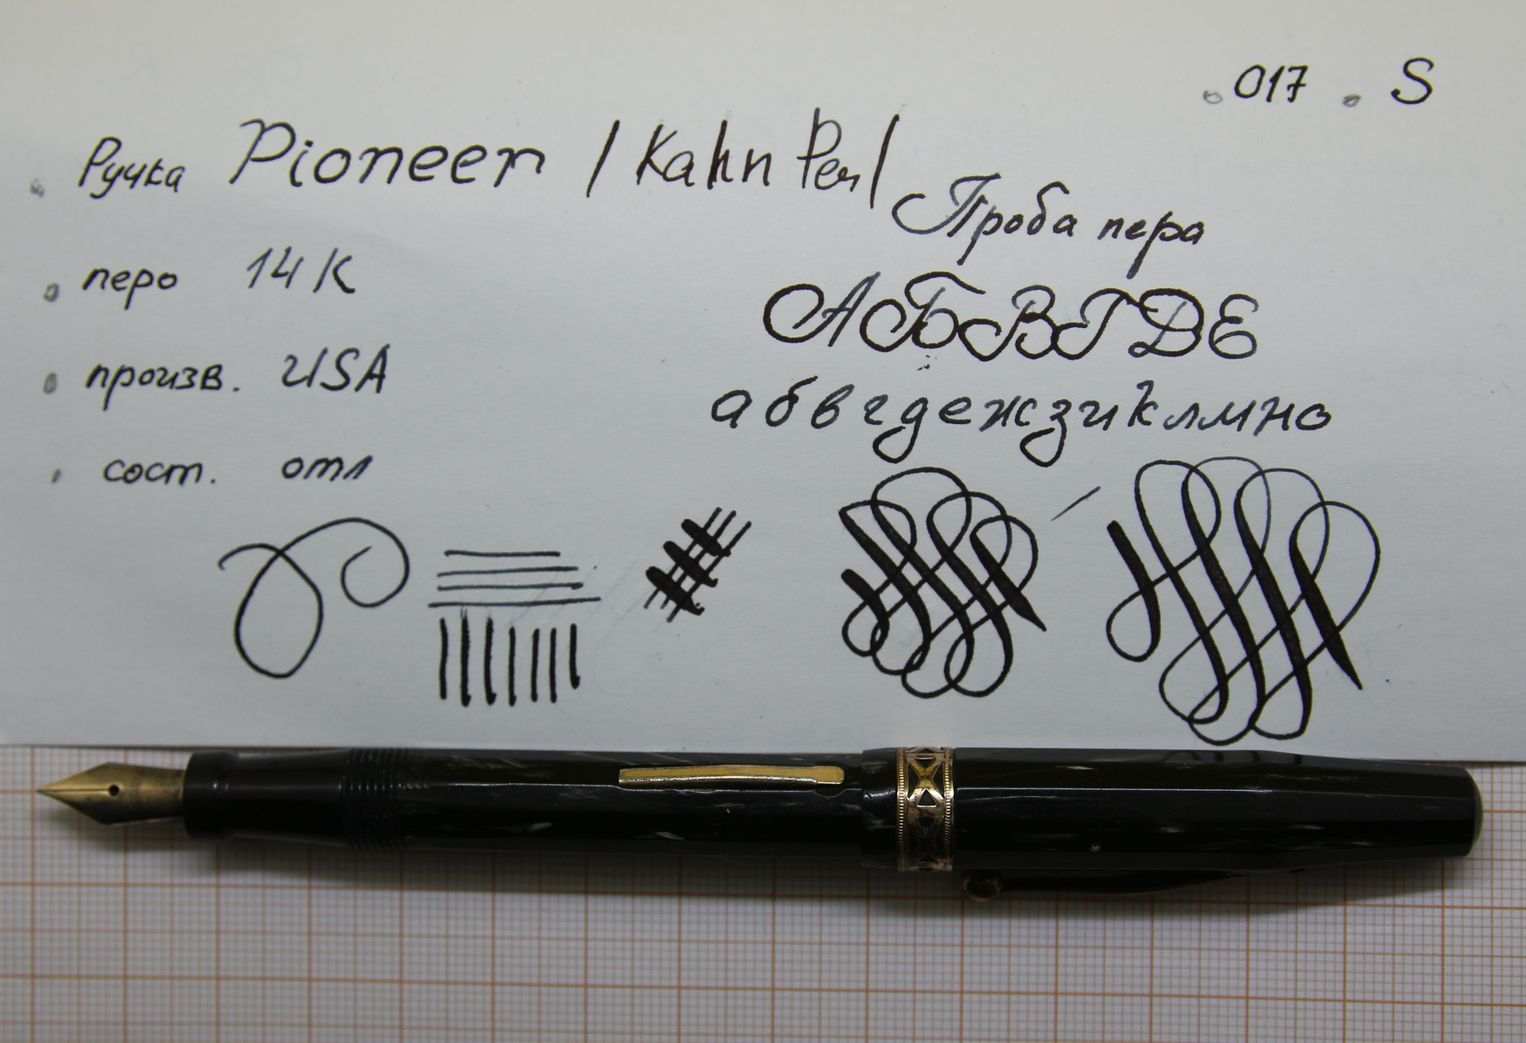 017 S
Ручка Pioneer / Kahn Pen /
Проба пера
перо 14 K
АБВГДЕ
произв. USA
абвгдежзиклмно
сост. отл